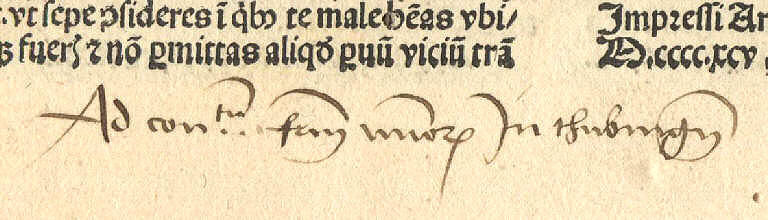 . vt sepe ꝯsideres ī q̇bꝯ te male hēas vbi/
fuerꝭ ⁊ nō ꝑmittas aliqḋ ꝑuū viciū trā
Impressi An
M.cccc.xcv
Ad conᵗᵘ fr̄m mīorꝝ In thubingn̄